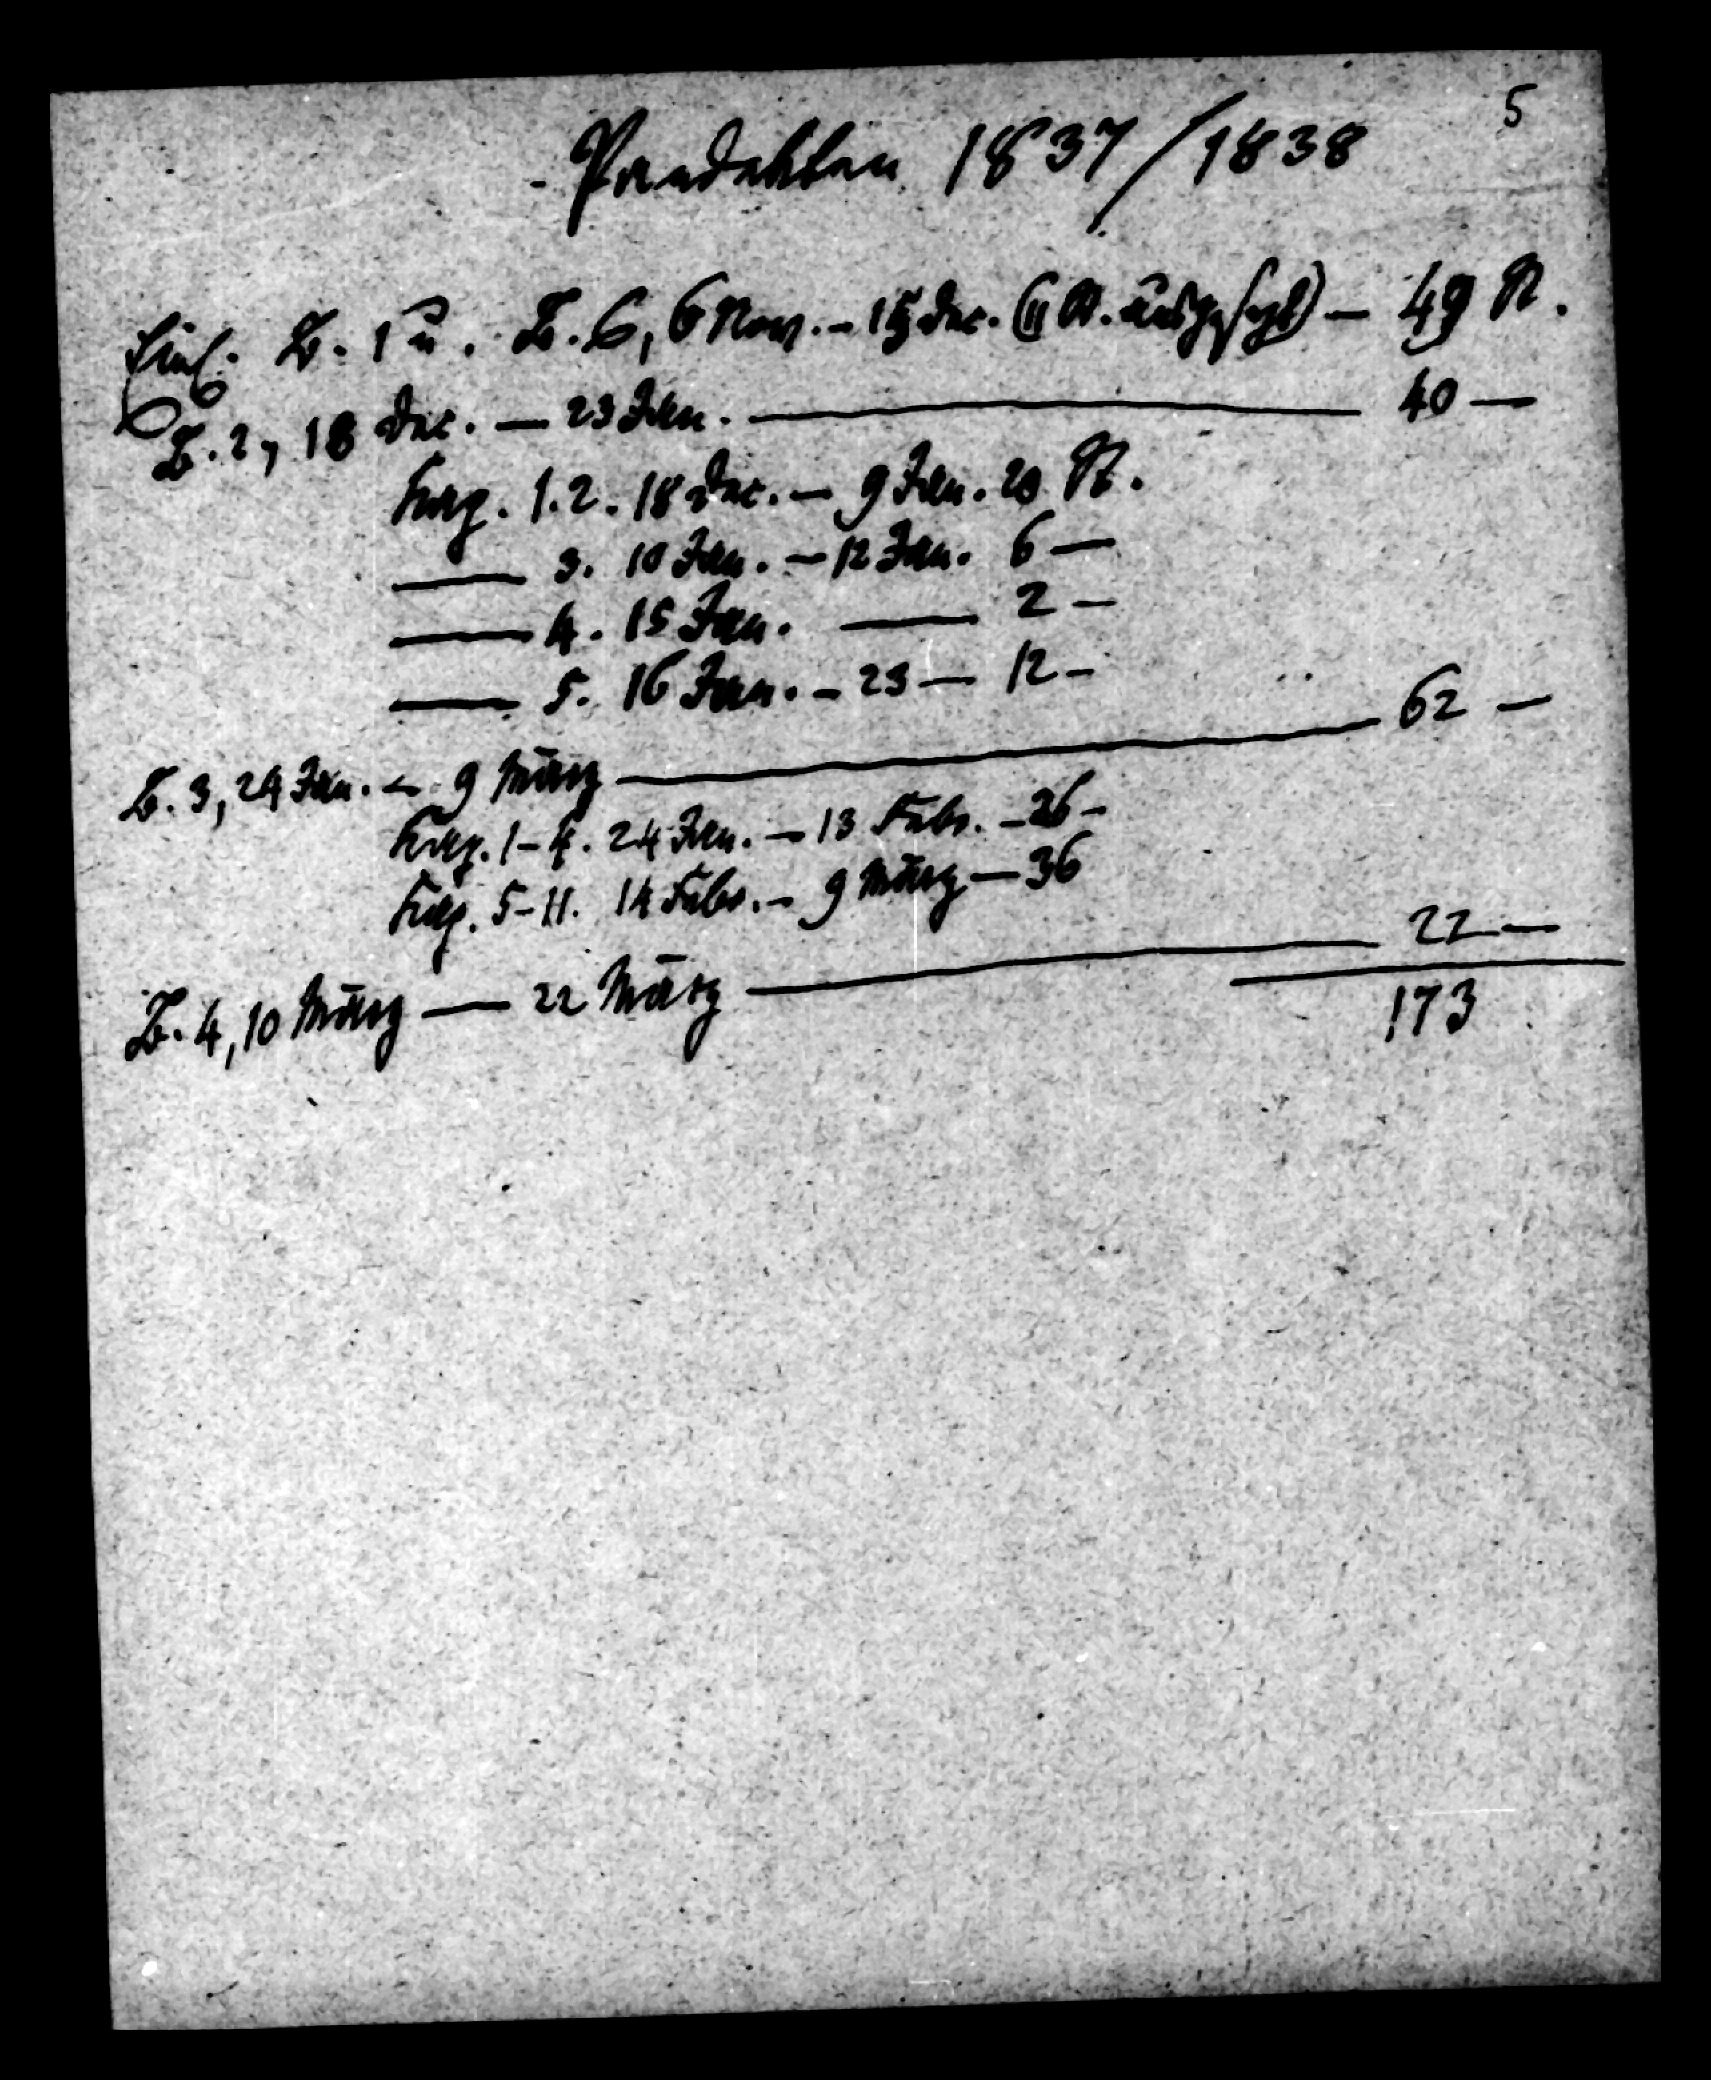 5
Pandekten 1837/1838
Einl. B. 1 u. B. 6, 6 Nov. – 15 Dec. (11 St. ausgesezt) – 49 St.
B. 2, 18 Dec. — 23 Jan. — 40 —
Kap. 1. 2. 18 Dec. – 9 Jan. 20 St.
— 3. 10 Jan. – 12 Jan. 6 —
— 4. 15 Jan. — 2 –
— 5. 16 Jan. – 23 — 12 –
B. 3, 24 Jan. – 9 März — 62 —
Kap. 1–4. 24 Jan. – 13 Febr. – 26 –
Kap. 5–11. 14 Febr. – 9 März — 36
B. 4, 10 März — 22 März — 22 —
173